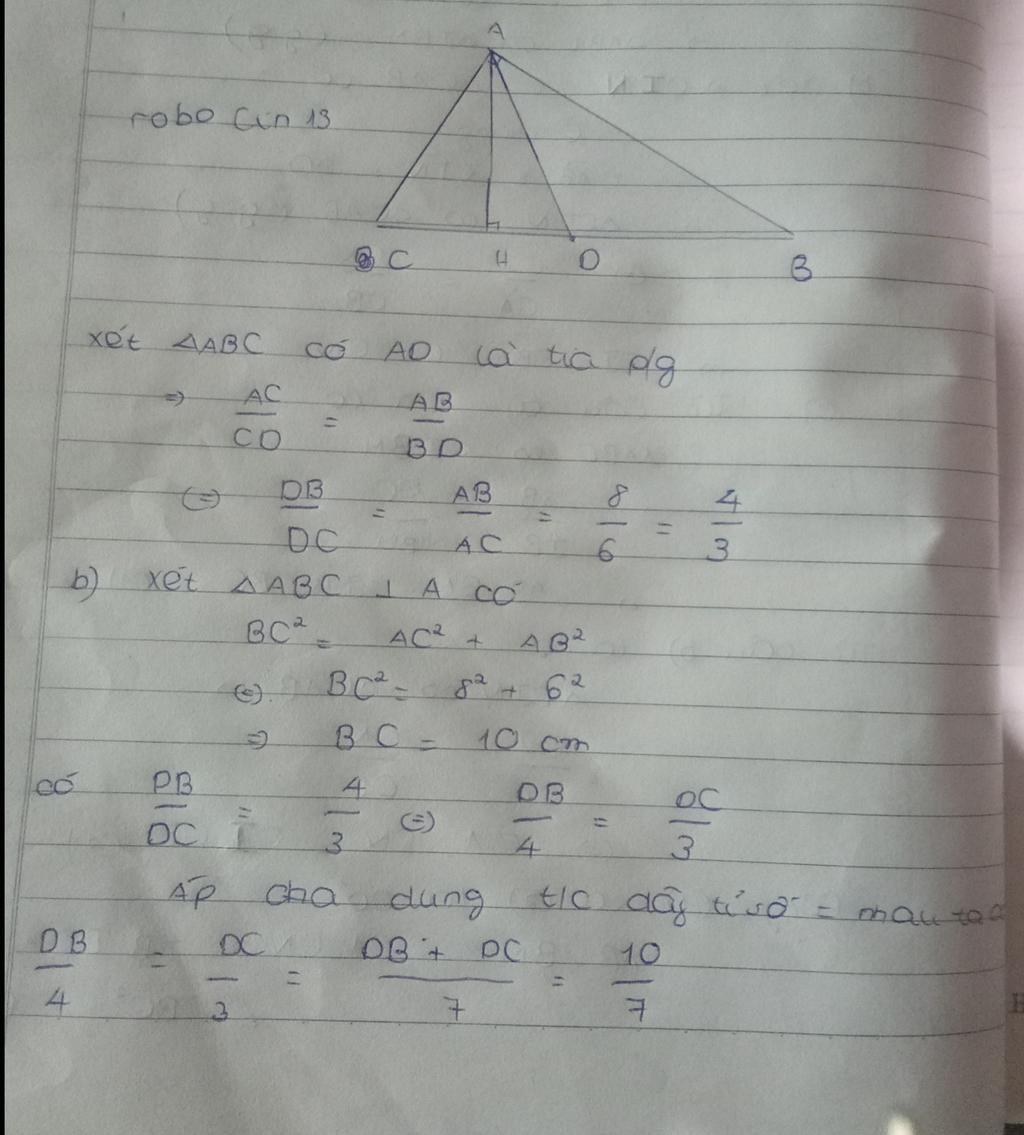 A
robo Cin 13
C H D B
xét ΔABC có AD là tia p/g
=> AC/CD = AB/BD
(=) DB/DC = AB/AC = 8/6 = 4/3
b) xét ΔABC ⊥ A có
BC² = AC² + AB²
(=) BC² = 8² + 6²
=> BC = 10 cm
có DB/DC = 4/3 (=) DB/4 = DC/3
Áp dung t/c dãy tỉ số = nhau ta
DB/4 = DC/3 = DB + DC/7 = 10/7